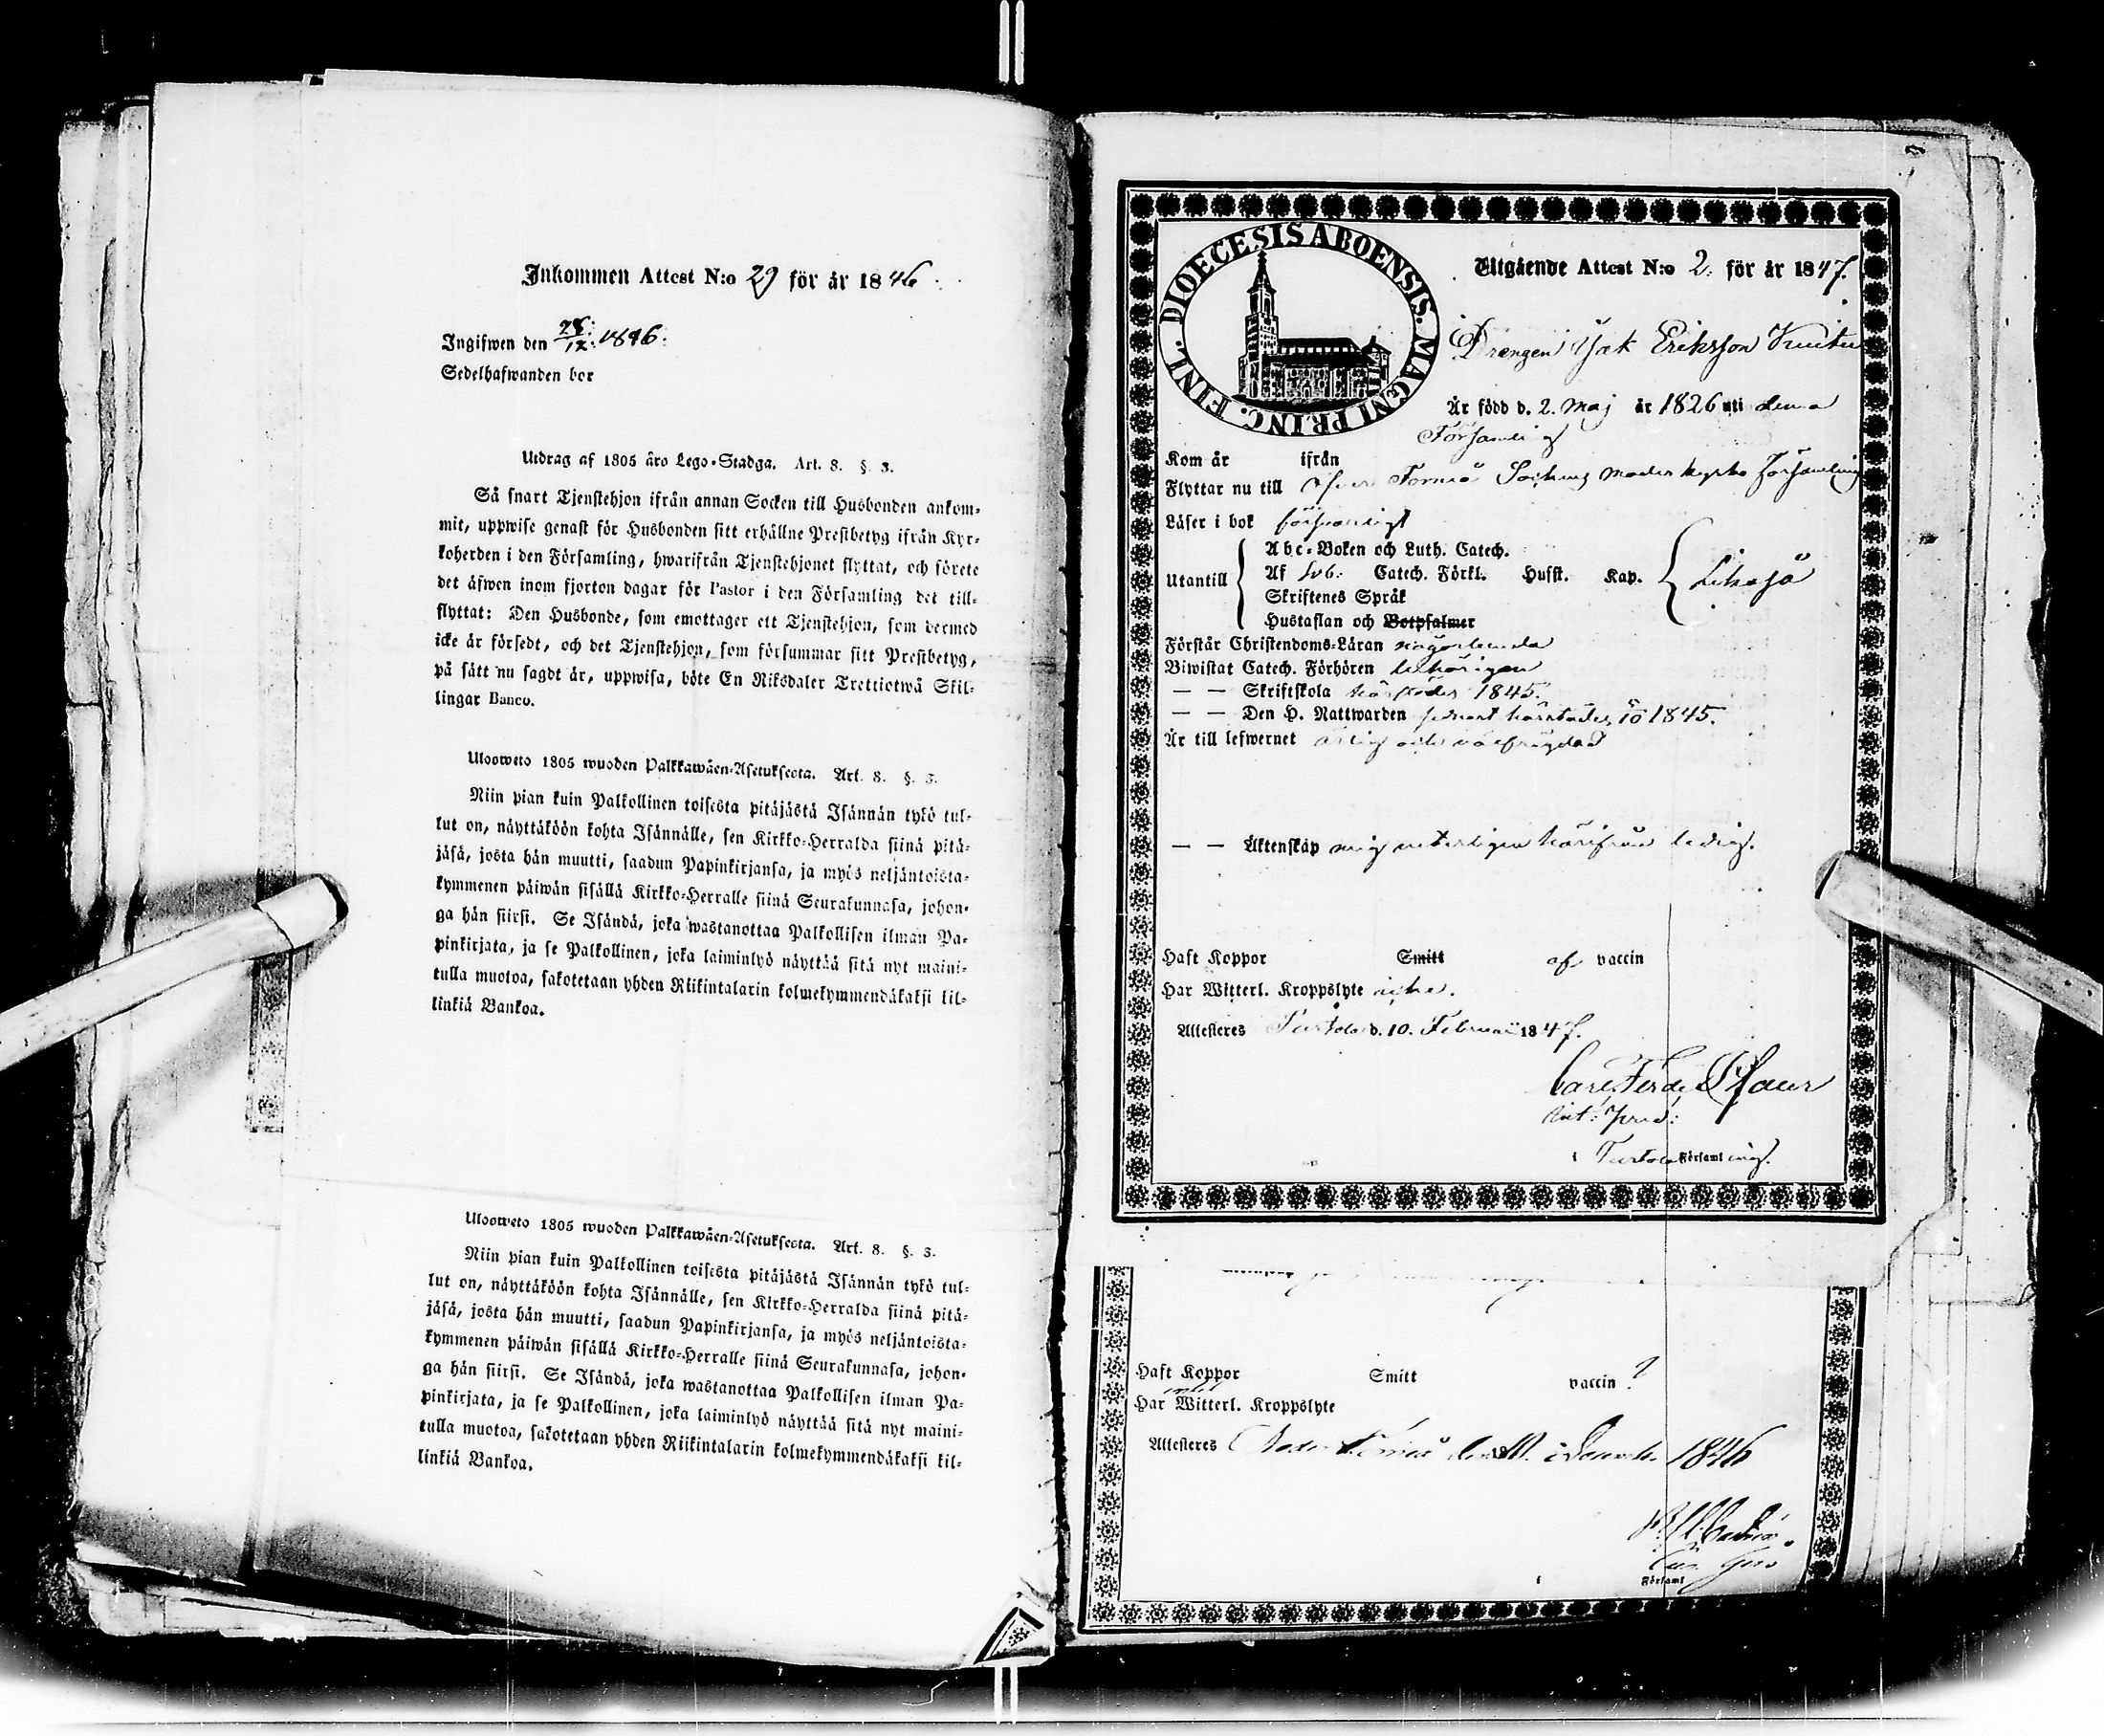 Inkommen Attest N:o 29 för år 1846.
Ingifwen den 28/12. 1846.
Sedelhafwanden bor
Utdrag af 1805 åro Lego-Stadga. Art. 8. §. 3.
Så snart Tjenstehjon ifrån annan Socken till Husbonden ankom-
mit, uppwise genast för Husbonden sitt erhållne Prestbetyg ifrån Kyr-
koherden i den Församling, hwarifrån Tjenstehjonet flyttat, och förete
det äfwen inom fjorton dagar för Pastor i den Församling det till-
flyttat: Den Husbonde, som emottager ett Tjenstehjon, som dermed
icke är försedt, och det Tjenstehjon, som försummar sitt Prestbetyg,
på sätt nu sagdt är, uppwisa, böte En Riksdaler Trettiotwå Skil-
lingar Banco.
Ulosweto 1805 wuoden Palkkawäen-Asetuksesta. Art. 8. §. 3.
Niin pian kuin Palkollinen toisesta pitäjästä Isännän tykö tul-
lut on, näyttäköön kohta Isännälle, sen Kirkko-Herralda siinä pitä-
jäsä, josta hän muutti, saadun Papinkirjansa, ja myös neljäntoista-
kymmenen päiwän sisällä Kirkko-Herralle siinä Seurakunnasa, johon-
ga hän siirsi. Se Isändä, joka wastanottaa Palkollisen ilman Pa-
pinkirjata, ja se Palkollinen, joka laiminlyö näyttää sitä nyt maini-
tulla muotoa, sakotetaan yhden Riikintalarin kolmekymmendäkaksi kil-
linkiä Bankoa.
Ulosweto 1805 wuoden Palkkawäen-Asetuksesta. Art. 8. §. 3.
Niin pian kuin Palkollinen toisesta pitäjästä Isännän tykö tul-
lut on, näyttäköön kohta Isännälle, sen Kirkko-Herralda siinä pitä-
jäsä, josta hän muutti, saadun Papinkirjansa, ja myös neljäntoista-
kymmenen päiwän sisällä Kirkko-Herralle siinä Seurakunnasa, johon-
ga hän siirsi. Se Isändä, joka wastanottaa Palkollisen ilman Pa-
pinkirjata, ja se Palkollinen, joka laiminlyö näyttää sitä nyt maini-
tulla muotoa, sakotetaan yhden Riikintalarin kolmekymmendäkaksi kil-
linkiä Bankoa.
DIOECESIS ABOENSIS. MAGNI PRINC. FINL.
Utgående Attest N:o 2. för år 1847.
Drengen Isak Eriksson
Är född d. 2. Maj år 1826 uti denna
Församling
Kom år ifrån
Flyttar nu till Öfver Torneå Sockens moderkyrko Församling
Läser i bok försvarligt
Utantill
Abc-Boken och Luth. Catech.
Af Sveb. Catech. Förkl. Husst. Kap.
Likaså
Skriftenes Språk
Hustaflan och Botpsalmer
Förstår Christendoms-Läran någorlunda
Biwistat Catech. Förhören behörigen
— — Skriftskola härstädes 1845.
— — Den H. Nattwarden senast härstädes 1845.
Är till lefwernet ärlig och välfrägdad
— — Äktenskap mig veterligen härifrån ledig.
Haft Koppor Smitt af vaccin
Har Witterl. Kroppslyte icke.
Attesteres Turtola d. 10. Februari 1847.
i Turtola Församling.
Haft Koppor Smitt vaccin ?
Har Witterl. Kroppslyte
Attesteres Torneå 1846
i Församl